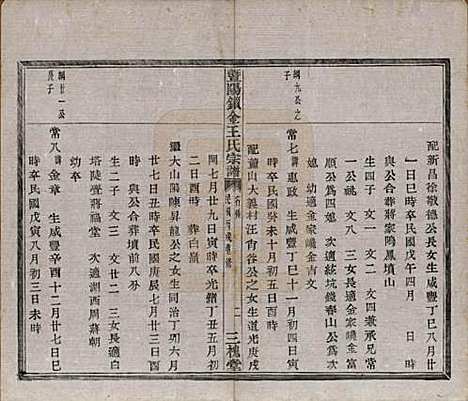 配新昌徐敬德公長女生咸豐丁巳八月廿
一日巳時卒民國戊午四月 日 時
與公合葬蔣家鳴鳳墳山
生四子 文一 文二 文四兼承兄常
一公祧 文八 三女長適金家嶴金
順公爲媳 次適統坑錢春山公爲次
媳 幼適金家嶴金吉文
綱九公之
子
常七 諱惠政 生咸豐丁巳十一月初四日
時卒民國癸未十月初五日酉時
配董山大義村汪育谷公之女生道光庚戌
閏七月廿九日寅時卒光緒丁丑五月初
二日酉時 葬白巖
繼大山陽陳昇龍公之女生同治丁夘六月
廿七日丑時卒民國庚辰七月廿七日午時
與公合葬墳前八分
生二子 文三 文廿二 三女長適白
塔陡壹蔣福堂 次適湖西周蔣朝
幼卒
綱廿一公
長子
常八 諱金章 生咸豐辛酉十二月廿七日巳
時卒民國戊寅八月初三日未時
暨陽鎖金王氏宗譜
三槐堂